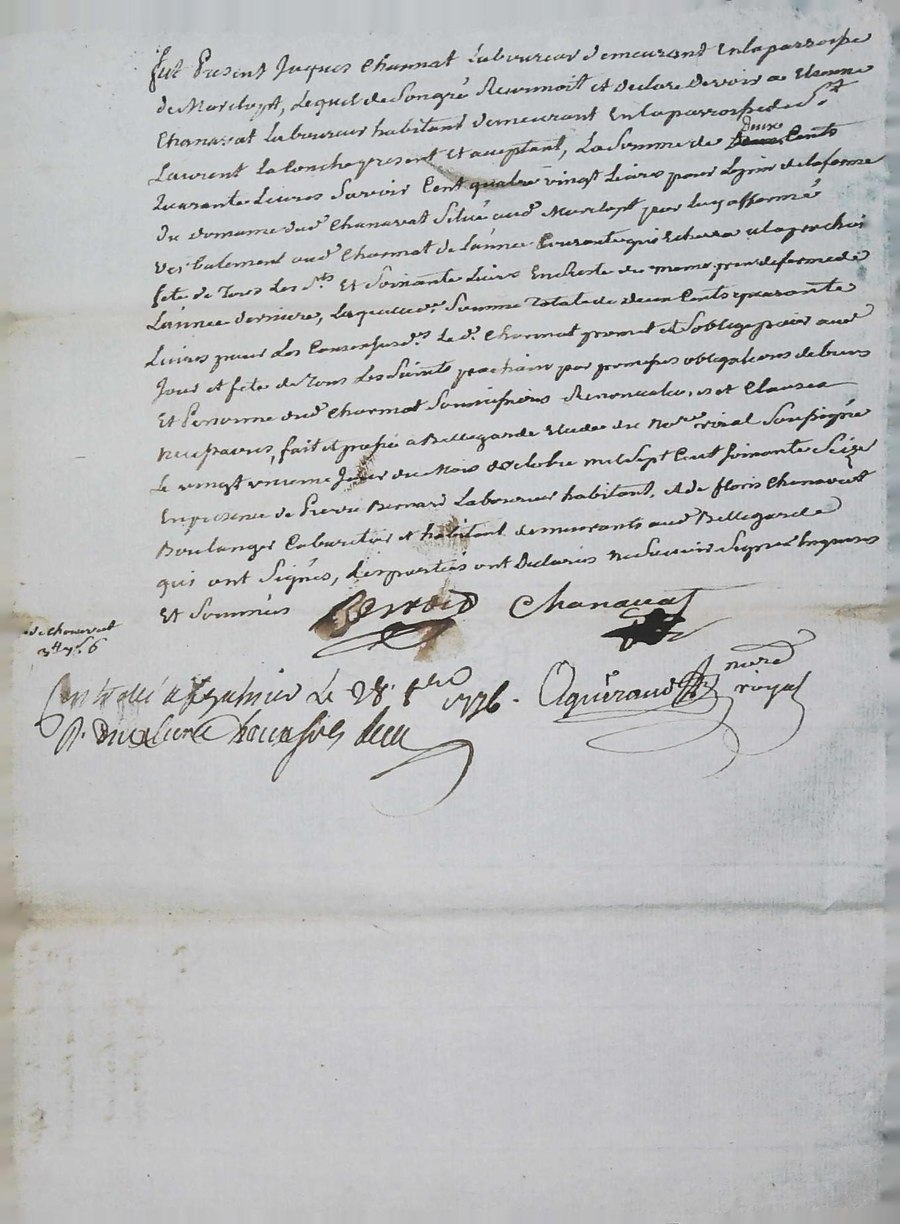 fut Présent Jaques Charmat Laboureur demeurant En la parroisse
de Marclopt, Lequel de Son gré Reconnoit et déclare devoir a Etienne
Chanavat laboureur habitant demeurant En la parroisse de St
Laurent la Conche présent et aceptant, La Somme de deux Cents
quarante Livres Savoir Cent quatre vingt Livres pour Le prix de la ferme
du domaine dud. Chanavat Situé aud. Marclopt par luy affermé
verbalement aud. Charmat de L'année Courante qui Echerra a la prochai
fete de Tous Les Sts Et Soixante Livres En Reste du meme prix de ferme de
L'année derniere, Laquelle Somme Totale de deux Cents quarante
Livres pour Les Causes susd. Le d. Charmat promet et S'oblige paier aud.
Jour et fete de Tous Les Saints prochain par promesses obligations de biens
Et Personne dud. Charmat Soumissions Renonciations et Clauses
necessaires, fait et passé a Bellegarde Etude du Nore roial Soussigné
Le vingt unieme Jour du Mois d'octobre mil Sept Cent soixante Seize
En présence de Pierre Bernard Laboureur habitant, et de floris Chanavat
Boulanger Cabaretier et habitant demeurants aud. Bellegarde
qui ont Signés, Les parties ont Déclarées ne Savoir Signer Enquises
Et Sommées
Chanavat
de Chanavat
Controllé a le 28 8bre 1776.
nore
royal